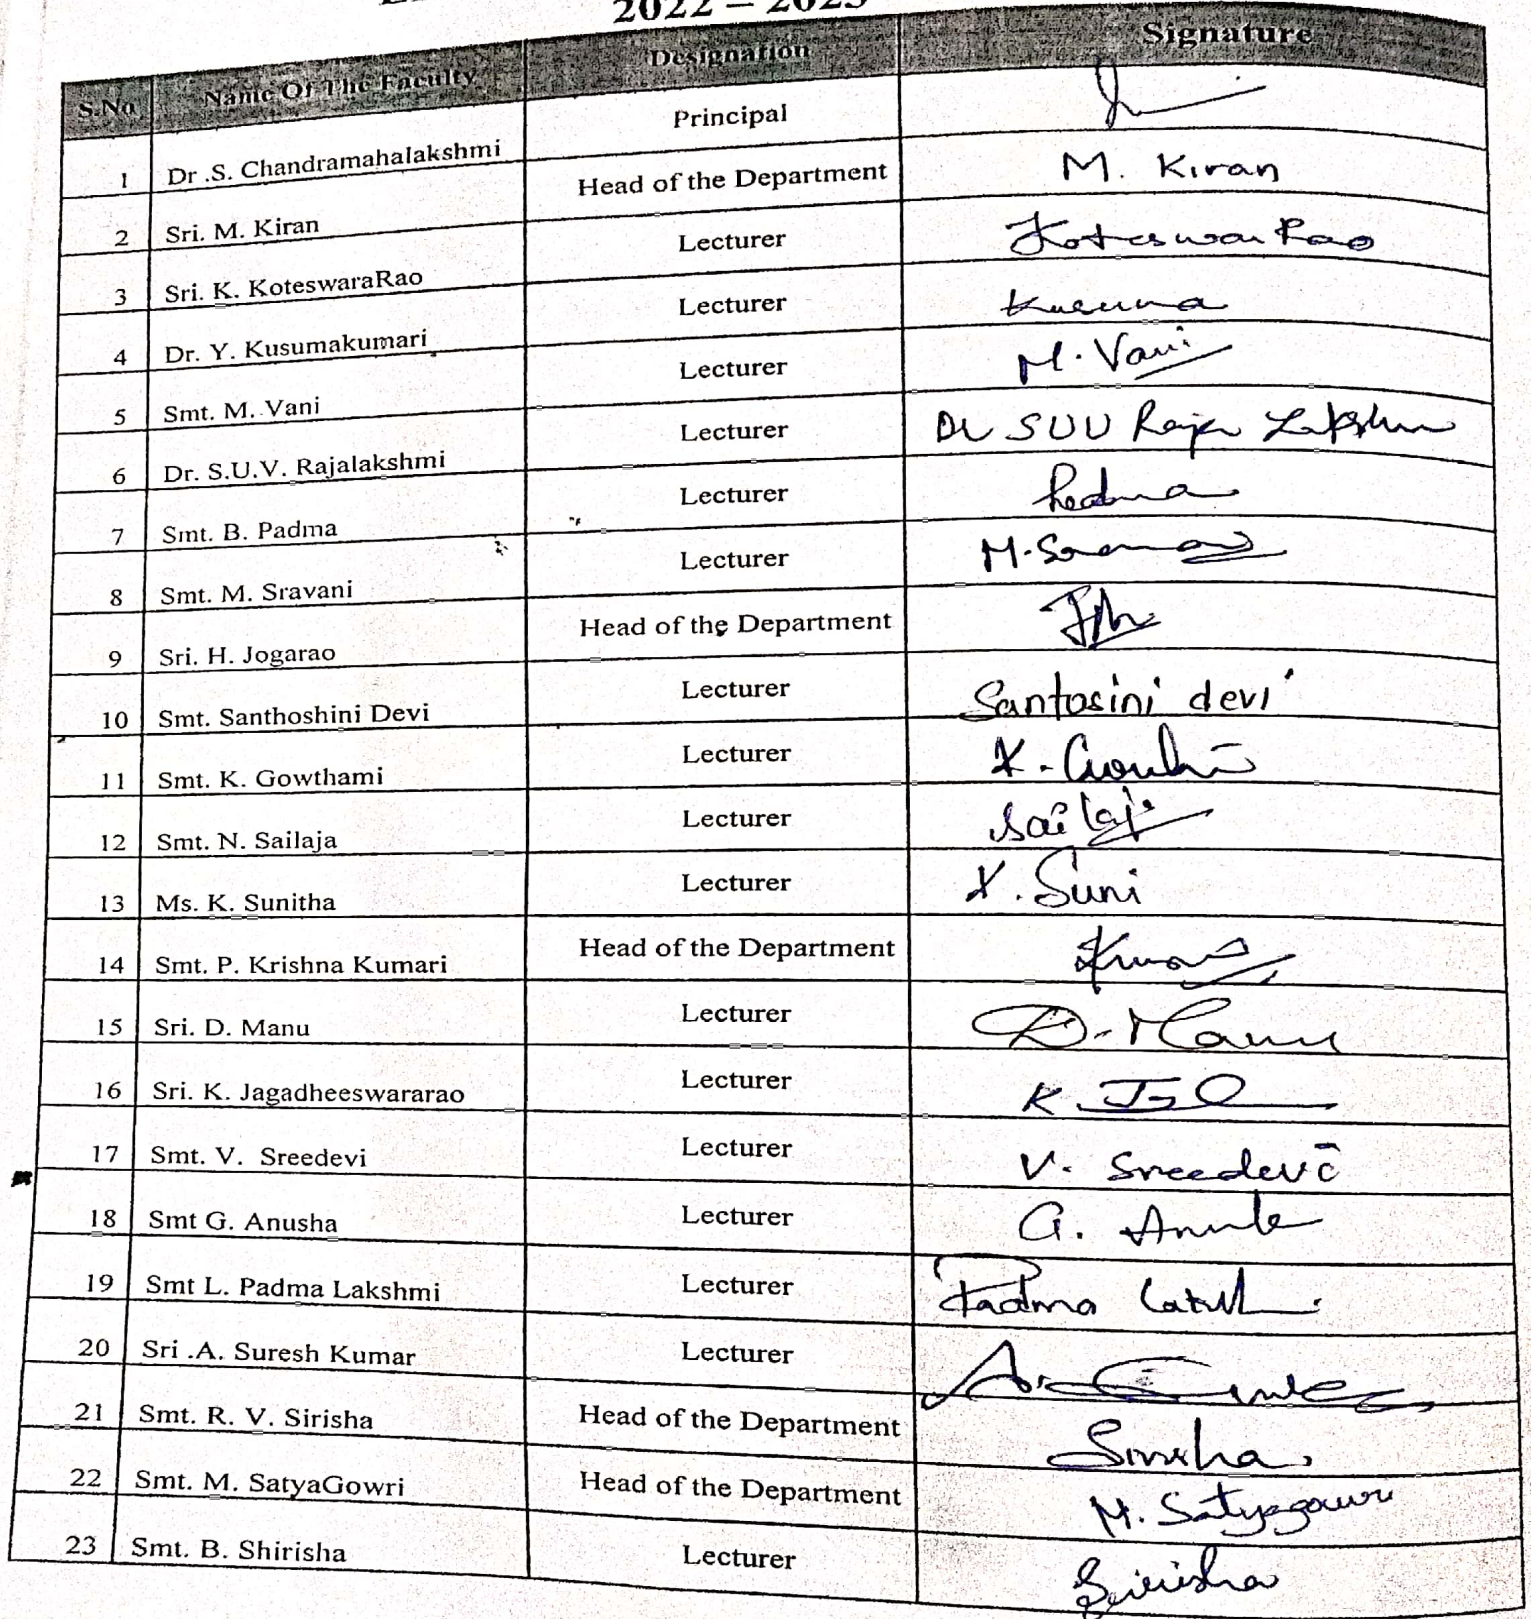 2022 – 2023
S.No Name Of The Faculty Designation Signature
1 Dr .S. Chandramahalakshmi Principal
2 Sri. M. Kiran Head of the Department M. Kiran
3 Sri. K. KoteswaraRao Lecturer Koteswara Rao
4 Dr. Y. Kusumakumari Lecturer Kusuma
5 Smt. M. Vani Lecturer M. Vani
6 Dr. S.U.V. Rajalakshmi Lecturer Dr SUV Raja Lakshmi
7 Smt. B. Padma Lecturer Padma
8 Smt. M. Sravani Lecturer M.
9 Sri. H. Jogarao Head of the Department
10 Smt. Santhoshini Devi Lecturer Santosini devi
11 Smt. K. Gowthami Lecturer K.
12 Smt. N. Sailaja Lecturer Sailaja
13 Ms. K. Sunitha Lecturer K. Suni
14 Smt. P. Krishna Kumari Head of the Department
15 Sri. D. Manu Lecturer D. Manu
16 Sri. K. Jagadheeswararao Lecturer K.
17 Smt. V. Sreedevi Lecturer V. Sreedevi
18 Smt G. Anusha Lecturer G.
19 Smt L. Padma Lakshmi Lecturer Padma
20 Sri .A. Suresh Kumar Lecturer
21 Smt. R. V. Sirisha Head of the Department Sirisha
22 Smt. M. SatyaGowri Head of the Department M. Satyagowri
23 Smt. B. Shirisha Lecturer Sirisha